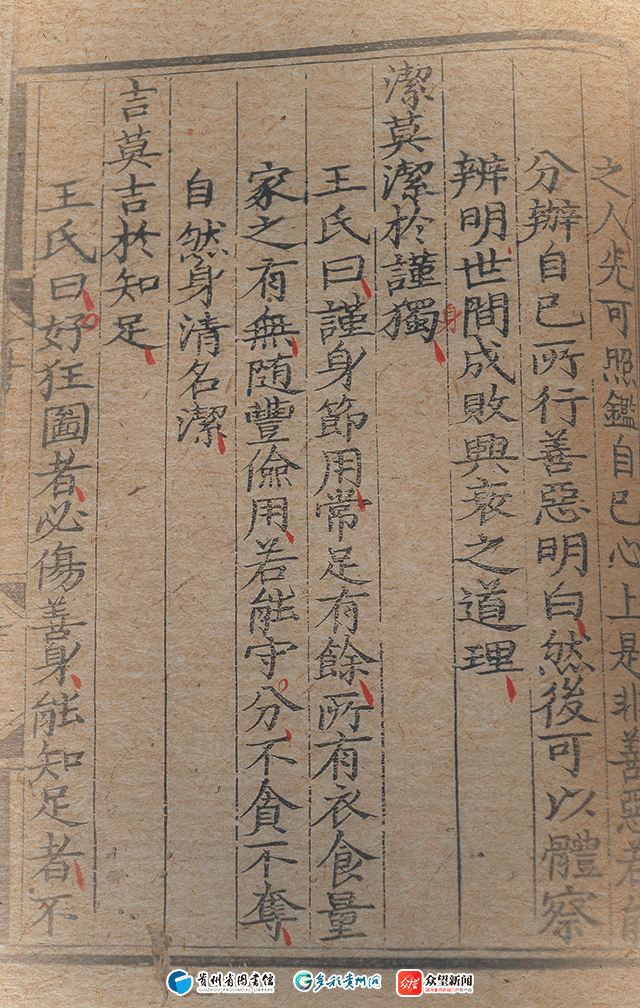 之人先可照鑑自己心上是非善惡若能
分辦自已所行善惡明白然後可以體察
辨明世間成敗興衰之道理
潔莫潔於謹獨
身
王氏曰謹身節用常足有餘所有衣食量
家之有無随豐儉用若能守分不貪不奪
自然身清名潔
吉莫吉於知足
王氏曰好狂圖者必傷善身能知足者不
贵州省图书馆
GUIZHOU PROVINCIAL LIBRARY
多彩贵州网
众望新闻